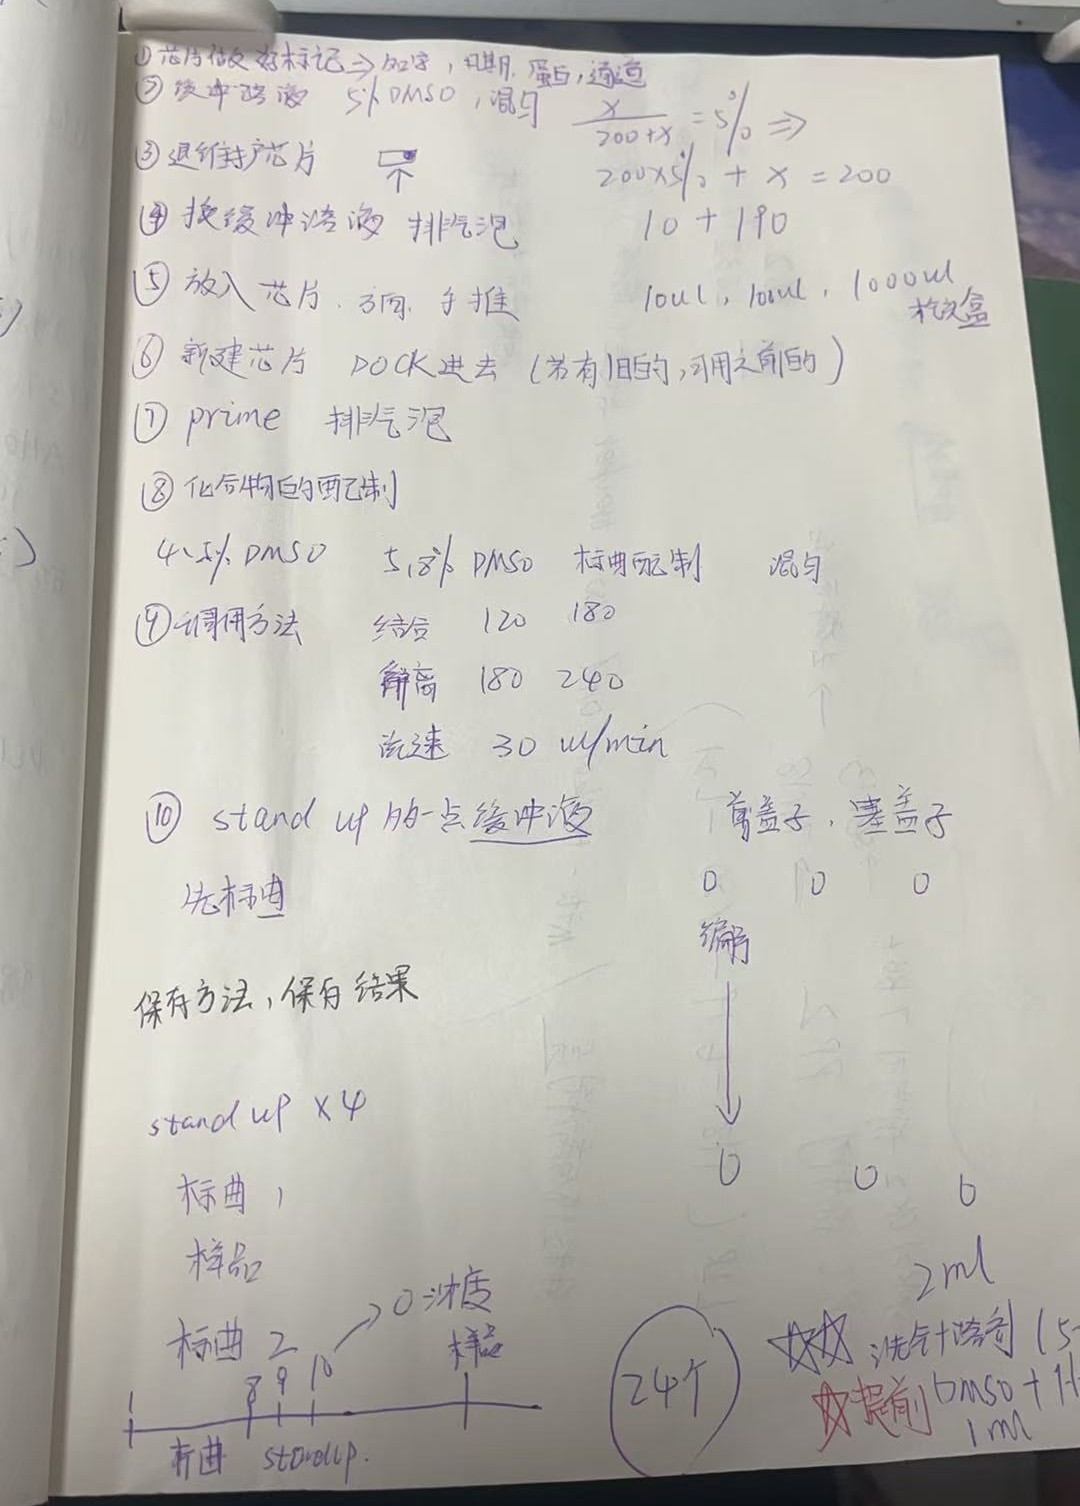 ① 芯片做好标记 ⇒ 名字，日期，蛋白，通道
② 缓冲溶液 5% DMSO，混匀 x/(200+x) = 5% ⇒
③ 退维护芯片 200×5% + x = 200
④ 换缓冲溶液 排气泡 10 + 190
⑤ 放入芯片．方向．手推 10ul，100ul，1000ul
枪头盒
⑥ 新建芯片 DOCK进去（若有旧的，可用之前的）
⑦ prime 排气泡
⑧ 化合物的配制
4.5% DMSO 5.8% DMSO 标曲配制 混匀
⑨ 调用方法 结合 120 180
解离 180 240
流速 30 ul/min
⑩ stand up 的一点缓冲液 剪盖子．塞盖子
先标曲 0 0 0
编号
保存方法，保存结果
stand up ×4
0 0 0
标曲1
样品
2ml
标曲2 0浓度
样品
1 8 9 10
标曲 standup.
24个
洗针溶剂 (5
提前 DMSO + H
1ml